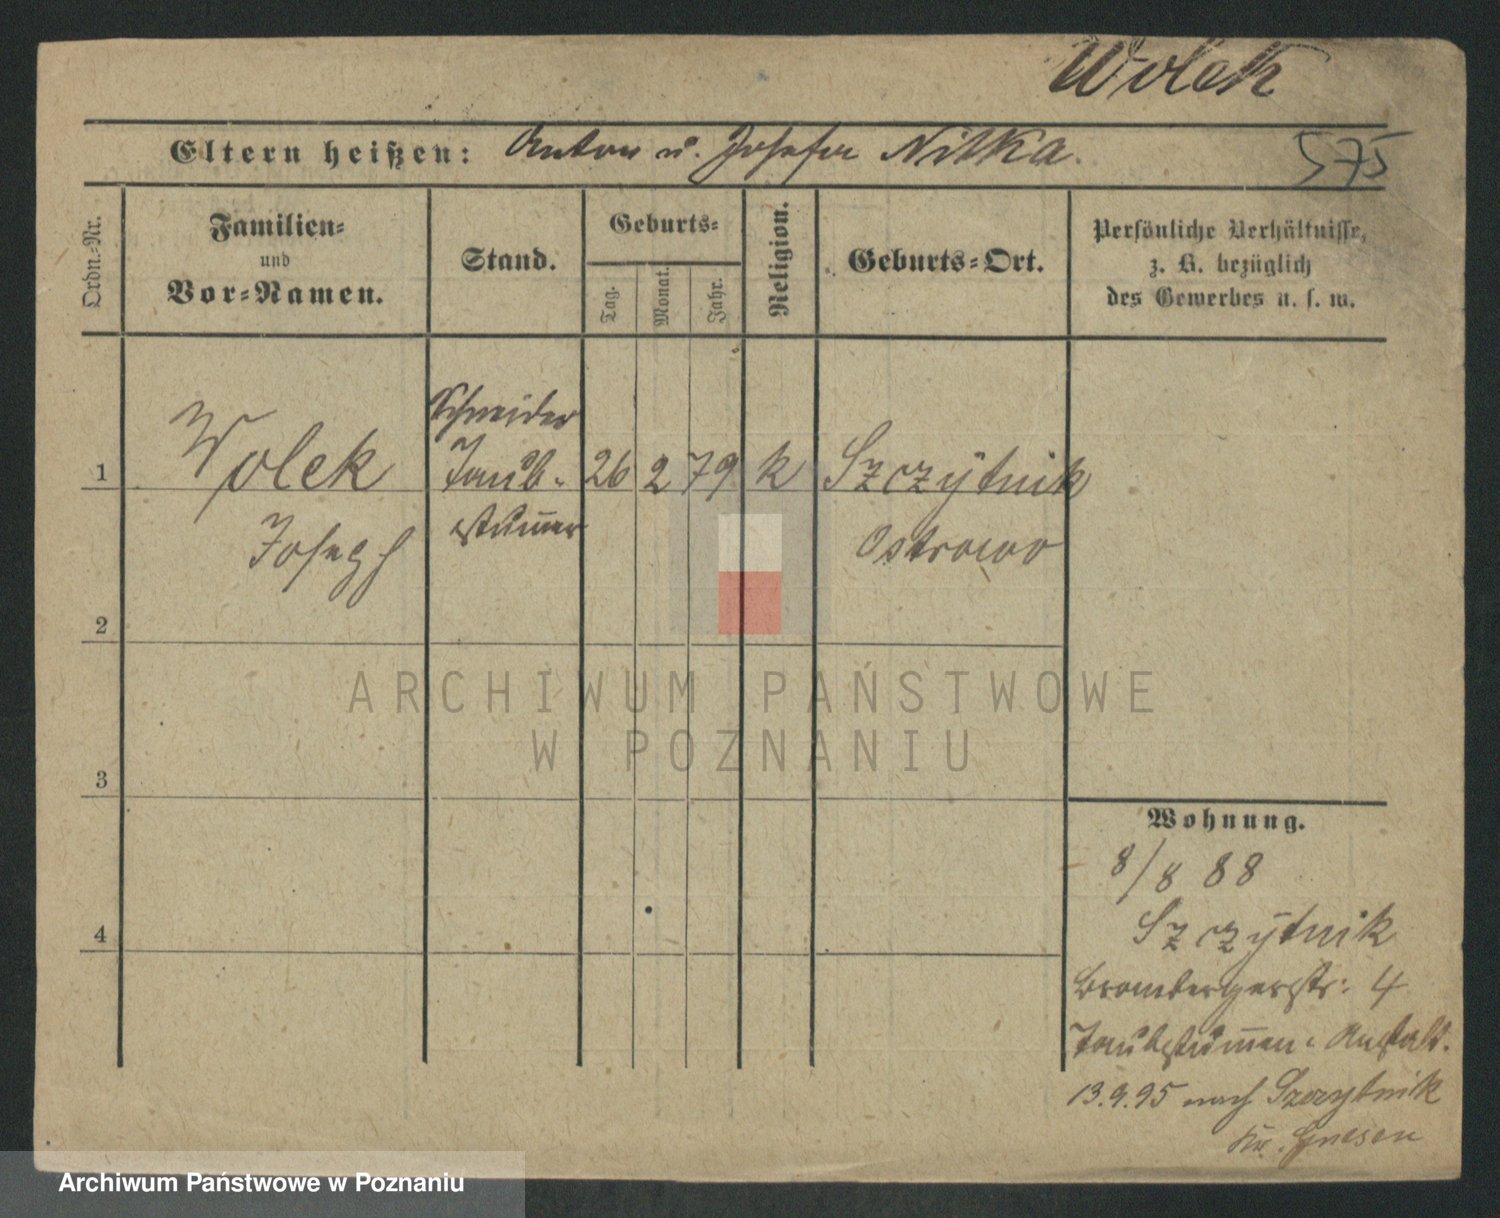 Wolek
Eltern heißen: Anton u. Josefa Nitka.
575
Ordn.-Nr.
Familien-
und
Vor-Namen.
Stand.
Geburts-
Tag.
Monat.
Jahr.
Religion.
Geburts-Ort.
Persönliche Verhältnisse,
z. B. bezüglich
des Gewerbes u. s. w.
1
Wolek
Joseph
Schneider
Taub-
stummer
26
2
79
k
Szczytnik
Ostrowo
2
3
4
Wohnung.
8/8 88
Szczytnik
Brombergerstr: 4
Taubstummen-Anstalt.
13.9.95 nach Szczytnik
Kr. Gnesen
ARCHIWUM PAŃSTWOWE
W POZNANIU
Archiwum Państwowe w Poznaniu